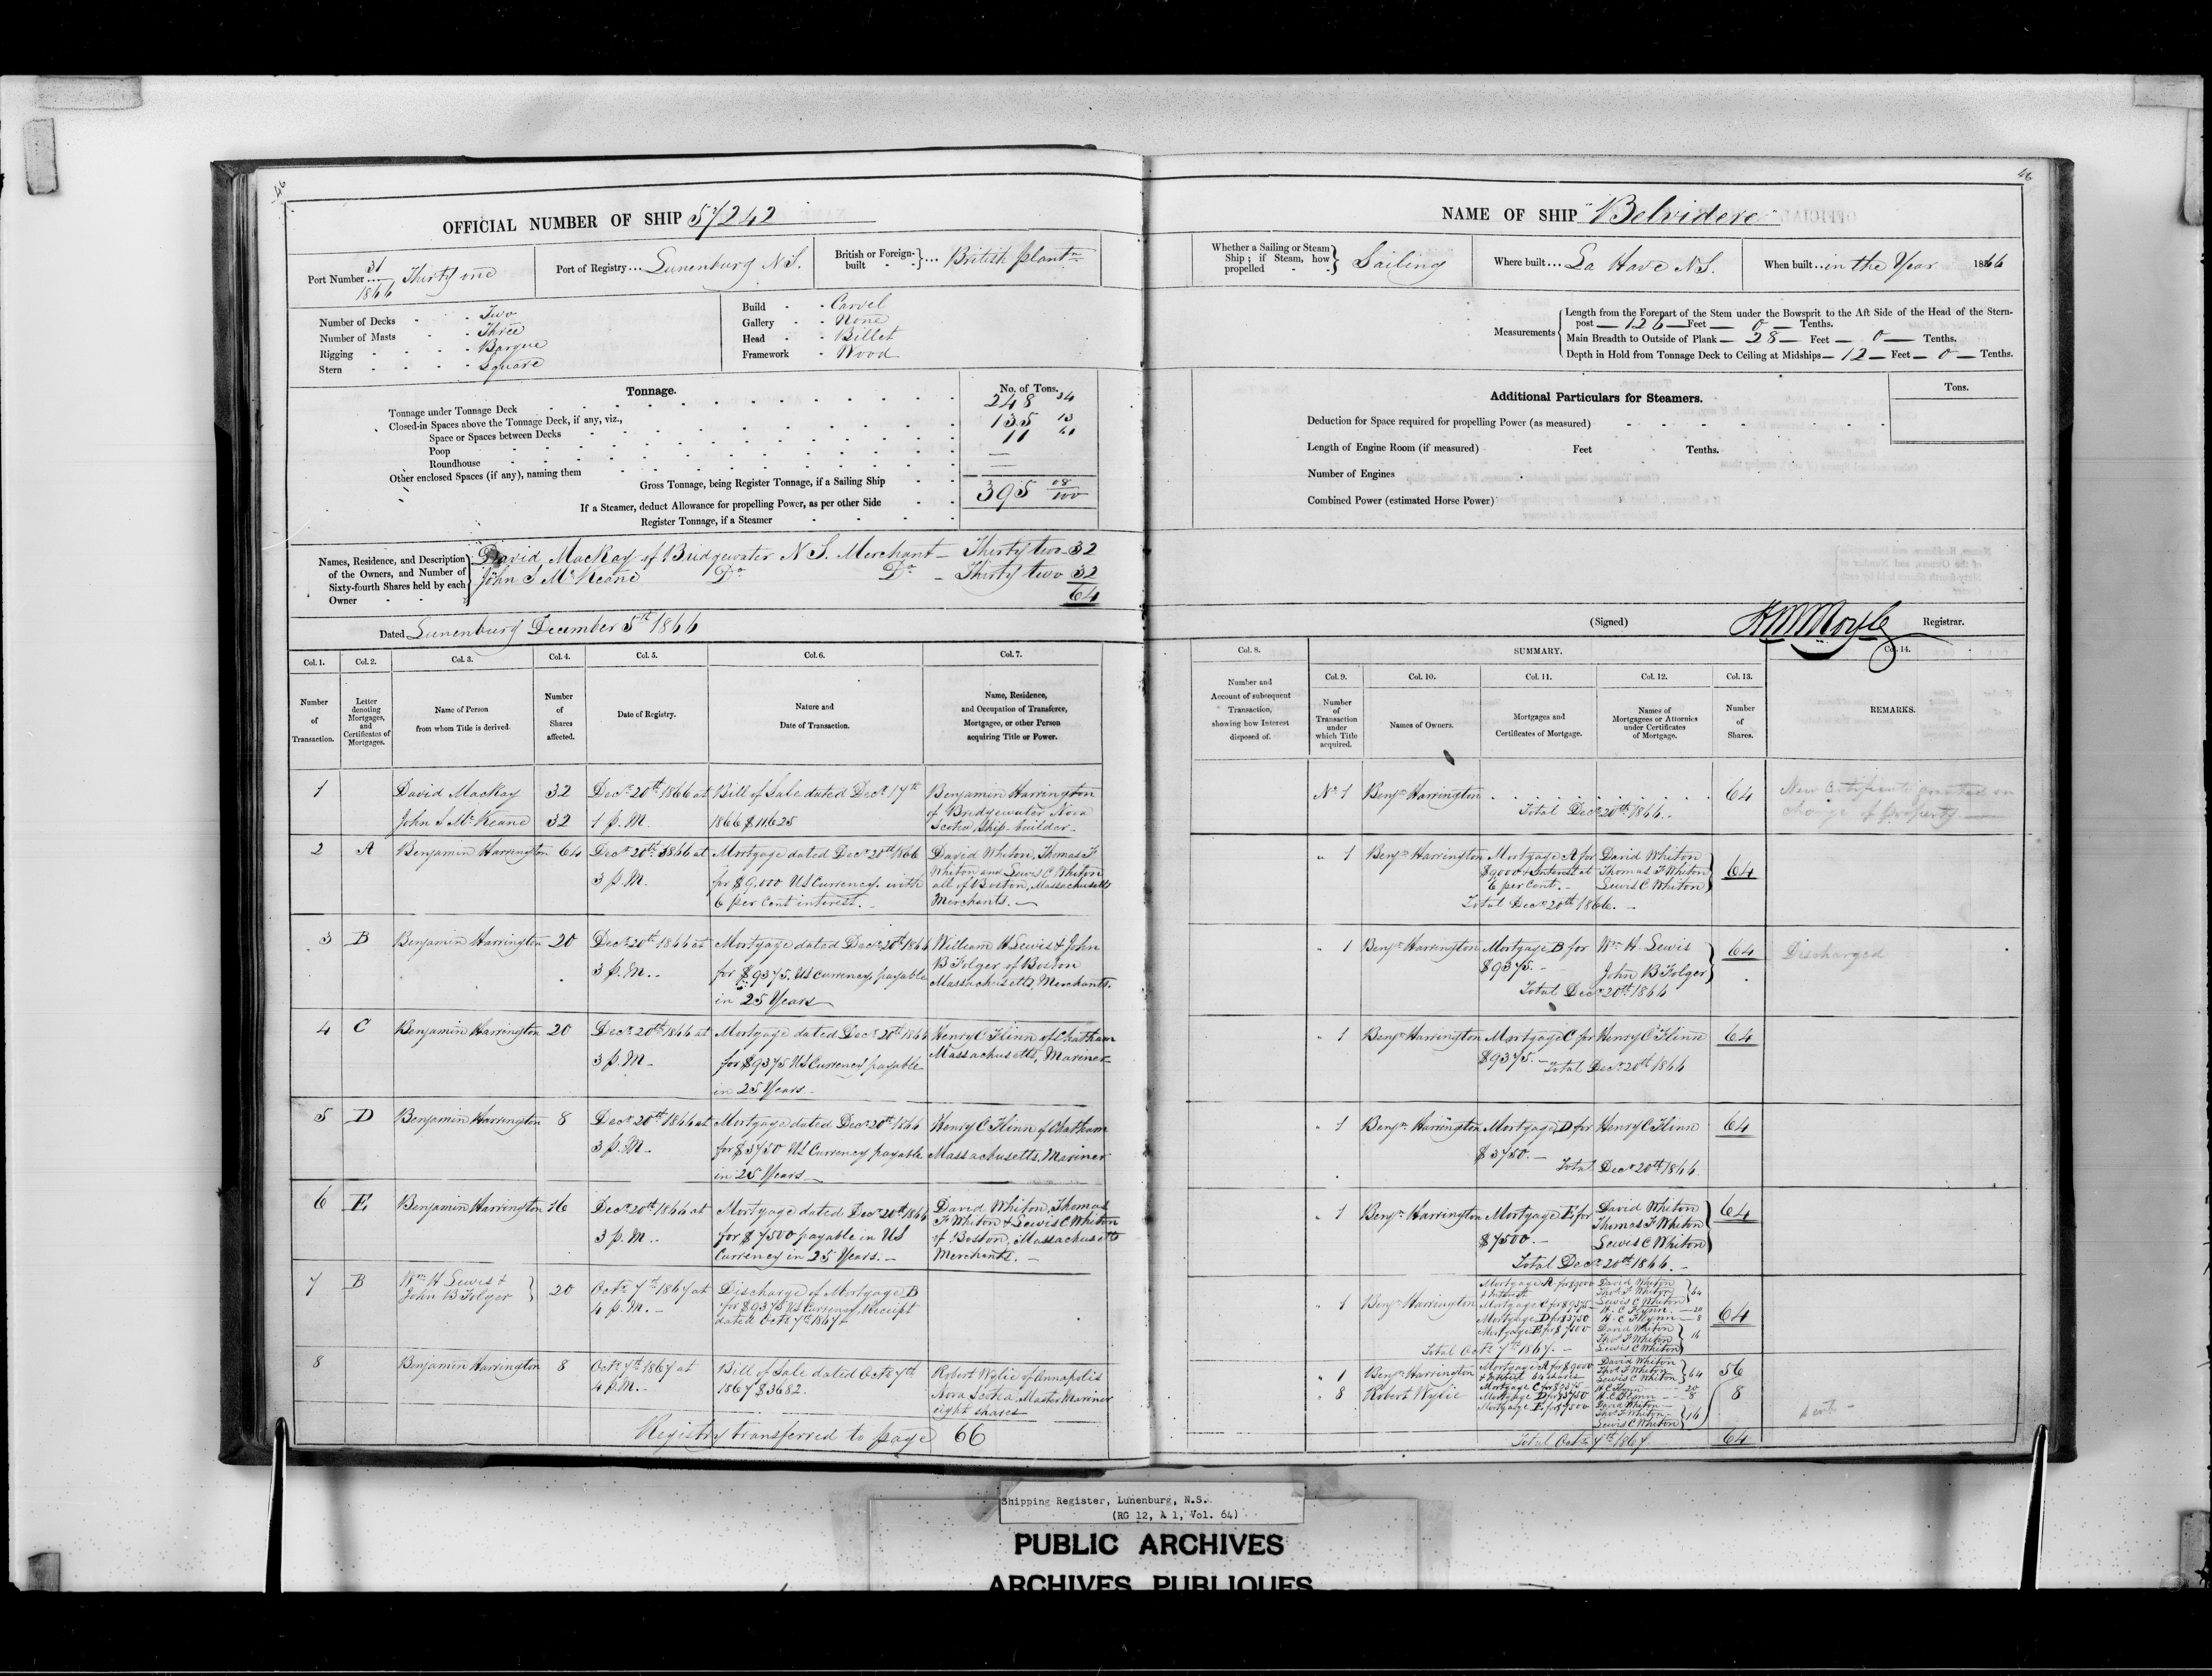 46
OFFICIAL NUMBER OF SHIP 57242
Port Number 31/1866 Thirty one
Port of Registry... Lunenburg N.S.
British or Foreign-built } ... British plantn
Number of Decks - Two
Number of Masts - Three
Rigging - Barque
Stern - Square
Build - Carvel
Gallery - None
Head - Billet
Framework - Wood
Tonnage.
No. of Tons.
Tonnage under Tonnage Deck 248 34
Closed-in Spaces above the Tonnage Deck, if any, viz.,
Space or Spaces between Decks 135 13
Poop 11 61
Roundhouse —
Other enclosed Spaces (if any), naming them —
Gross Tonnage, being Register Tonnage, if a Sailing Ship 395 08/100
If a Steamer, deduct Allowance for propelling Power, as per other Side
Register Tonnage, if a Steamer
Names, Residence, and Description of the Owners, and Number of Sixty-fourth Shares held by each Owner
David MacKay of Bridgewater N.S. Merchant — Thirty two 32
John S McKeane Do Do — Thirty two 32
64
Dated Lunenburg December 5th 1866
Col. 1. Col. 2. Col. 3. Col. 4. Col. 5. Col. 6. Col. 7.
Number of Transaction.
Letter denoting Mortgages, and Certificates of Mortgages.
Name of Person from whom Title is derived.
Number of Shares affected.
Date of Registry.
Nature and Date of Transaction.
Name, Residence, and Occupation of Transferee, Mortgagee, or other Person acquiring Title or Power.
1 David MacKay 32 Decr 20th 1866 at Bill of Sale dated Decr 17th Benjamin Harrington
John S McKeane 32 1 p.M. 1866 $11625 of Bridgewater Nova
Scotia, Ship-builder
2 A Benjamin Harrington 64 Decr 20th 1866 at Mortgage dated Decr 20th 1866 David Whiton, Thomas F
3 p.M. for $9.000 US Currency. with Whiton and Lewis C Whiton
all of Boston, Massachusetts
6 per Cent interest. Merchants.
3 B Benjamin Harrington 20 Decr 20th 1866 at Mortgage dated Decr 20th 1866 William H Lewis & John
3 p.M. for $9375 US Currency, payable B Folger of Boston
in 25 Years Massachusetts, Merchants.
4 C Benjamin Harrington 20 Decr 20th 1866 at Mortgage dated Decr 20th 1866 Henry C Flinn of Chatham
3 p.M. for $9375 US Currency payable Massachusetts, Mariner
in 25 Years.
5 D Benjamin Harrington 8 Decr 20th 1866 at Mortgage dated Decr 20th 1866 Henry C Flinn of Chatham
3 p.M. for $3750 US Currency payable Massachusetts, Mariner
in 25 Years
6 E Benjamin Harrington 16 Decr 20th 1866 at Mortgage dated Decr 20th 1866 David Whiton, Thomas
3 p.M. for $7500 payable in US F Whiton & Lewis C Whiton
of Boston, Massachusetts
Currency in 25 Years. Merchants.
7 B Wm H Lewis & John B Folger } 20 Octr 7th 1867 at Discharge of Mortgage B
4 p.M. for $9375 US Currency, Receipt
dated Octr 7th 1867
8 Benjamin Harrington 8 Octr 7th 1867 at Bill of Sale dated Octr 7th Robert Wylie of Annapolis
4 p.M. 1867 $3682. Nova Scotia, Master Mariner
eight shares
Registry transferred to page 66
46
NAME OF SHIP "Belvidere"
Whether a Sailing or Steam Ship; if Steam, how propelled } Sailing
Where built... La Have N.S.
When built... in the Year 1866
Measurements
Length from the Forepart of the Stem under the Bowsprit to the Aft Side of the Head of the Stern-
post — 126 — Feet — 0 — Tenths.
Main Breadth to Outside of Plank — 28 — Feet — 0 — Tenths.
Depth in Hold from Tonnage Deck to Ceiling at Midships — 12 — Feet — 0 — Tenths.
Additional Particulars for Steamers.
Tons.
Deduction for Space required for propelling Power (as measured)
Length of Engine Room (if measured) Feet Tenths.
Number of Engines
Combined Power (estimated Horse Power)
(Signed) Registrar.
Col. 8. SUMMARY. Col. 14.
Col. 9. Col. 10. Col. 11. Col. 12. Col. 13.
Number and Account of subsequent Transaction, showing how Interest disposed of.
Number of Transaction under which Title acquired.
Names of Owners.
Mortgages and Certificates of Mortgage.
Names of Mortgagees or Attornies under Certificates of Mortgage.
Number of Shares.
REMARKS.
No 1 Benjn Harrington 64 New Certificate granted on
Total Decr 20th 1866. change of property.
" 1 Benjn Harrington Mortgage A for David Whiton
$9000 & Interest at Thomas F Whiton 64
6 per Cent. Lewis C Whiton
Total Decr 20th 1866.
" 1 Benjn Harrington Mortgage B for Wm H. Lewis 64 Discharged
$9375. John B Folger
Total Decr 20th 1866
" 1 Benjn Harrington Mortgage C for Henry C Flinn 64
$9375. Total Decr 20th 1866
" 1 Benjn Harrington Mortgage D for Henry C Flinn 64
$3750. Total Decr 20th 1866
" 1 Benjn Harrington Mortgage E for David Whiton 64
Thomas F Whiton
$7500. Lewis C Whiton
Total Decr 20th 1866.
Mortgage A for $9000 David Whiton
& interest Thos F Whiton } 64
Lewis C Whiton
" 1 Benjn Harrington Mortgage C for $9375 H. C Flynn — 20 64
Mortgage D for $3750 H. C Flynn — 8
Mortgage E for $7500 David Whiton
Thos F Whiton } 16
Total Octr 7th 1867. Lewis C Whiton
" 1 Benjn Harrington Mortgage A for $9000 David Whiton 56
& Interest 64 shares Thos F Whiton } 64
Lewis C Whiton
" 8 Robert Wylie Mortgage C for $9375 H C Flynn — 20 8
Mortgage D for $3750 H. C Flynn — 8
Mortgage E for $7500 David Whiton
Thos F Whiton } 16
Lewis C Whiton
Total Octr 7th 1867 64
Shipping Register, Lunenburg, N.S.
(RG 12, A 1, Vol. 64)
PUBLIC ARCHIVES
ARCHIVES PUBLIQUES